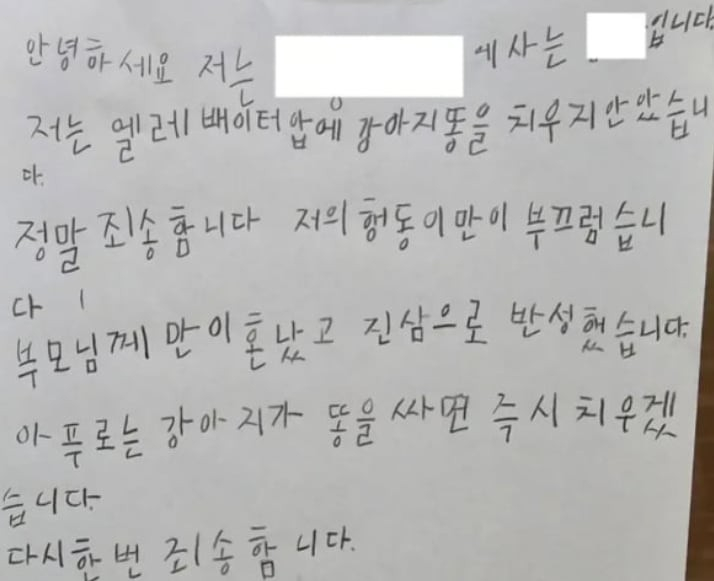 안녕하세요 저는 에사는 입니다
저는 엘레베이터앞에 강아지똥을 치우지안았습니
다.
정말 죄송함니다 저의 헝동이만이 부끄럽습니
다
부모님께 만이혼났고 진삼으로 반성했습니다.
아푸로는 강아지가 똥을 싸면 즉시 치우겠
습니다.
다시한번 죄송함니다.